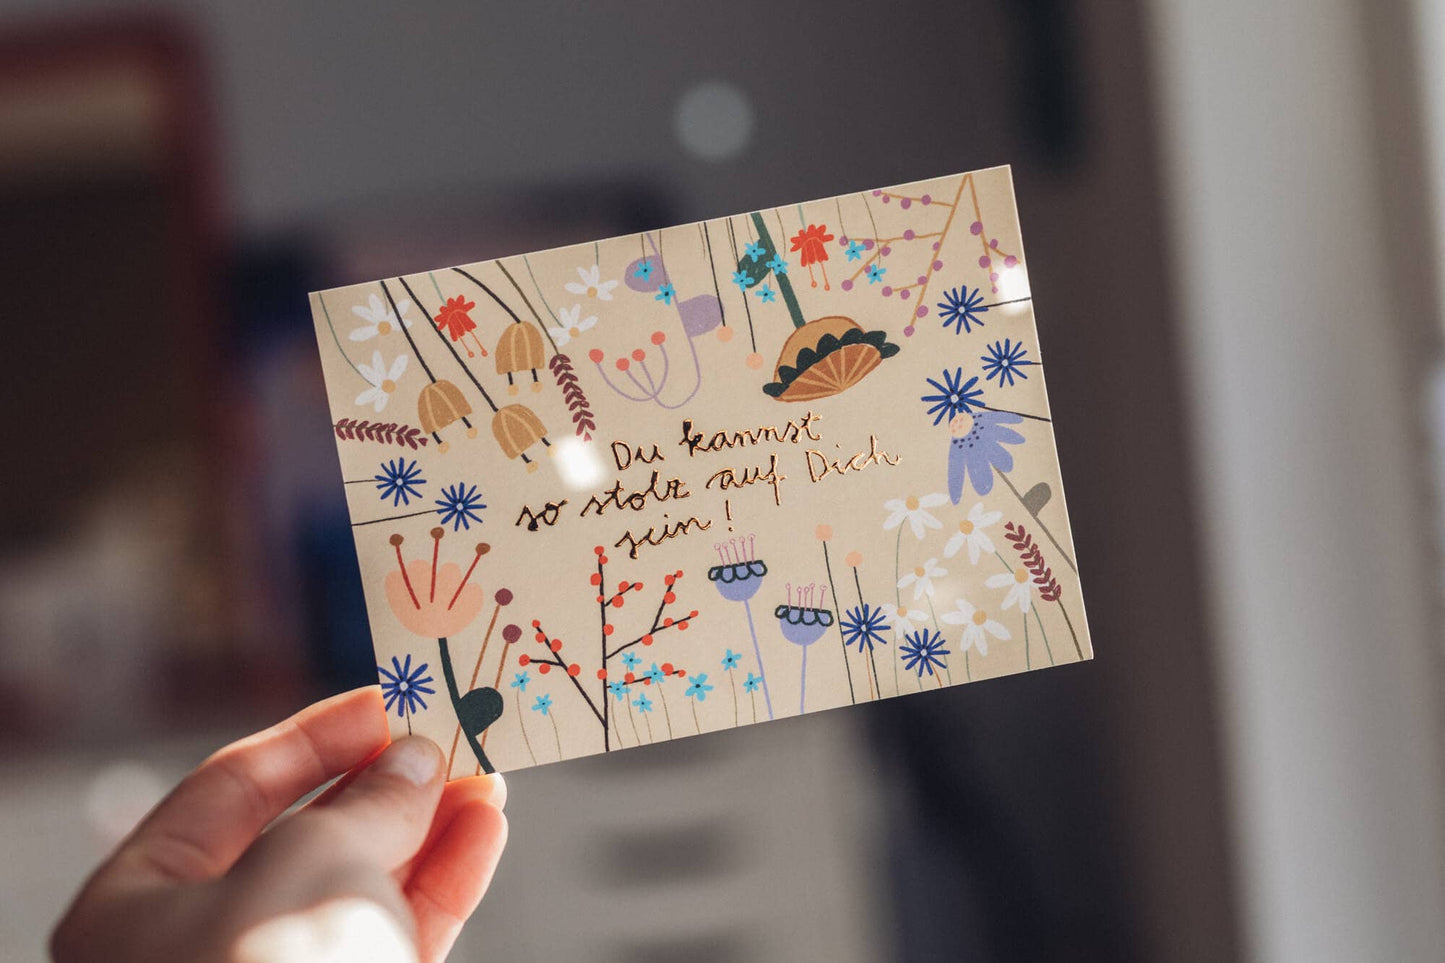 Du kannst
so stolz auf Dich
sein!